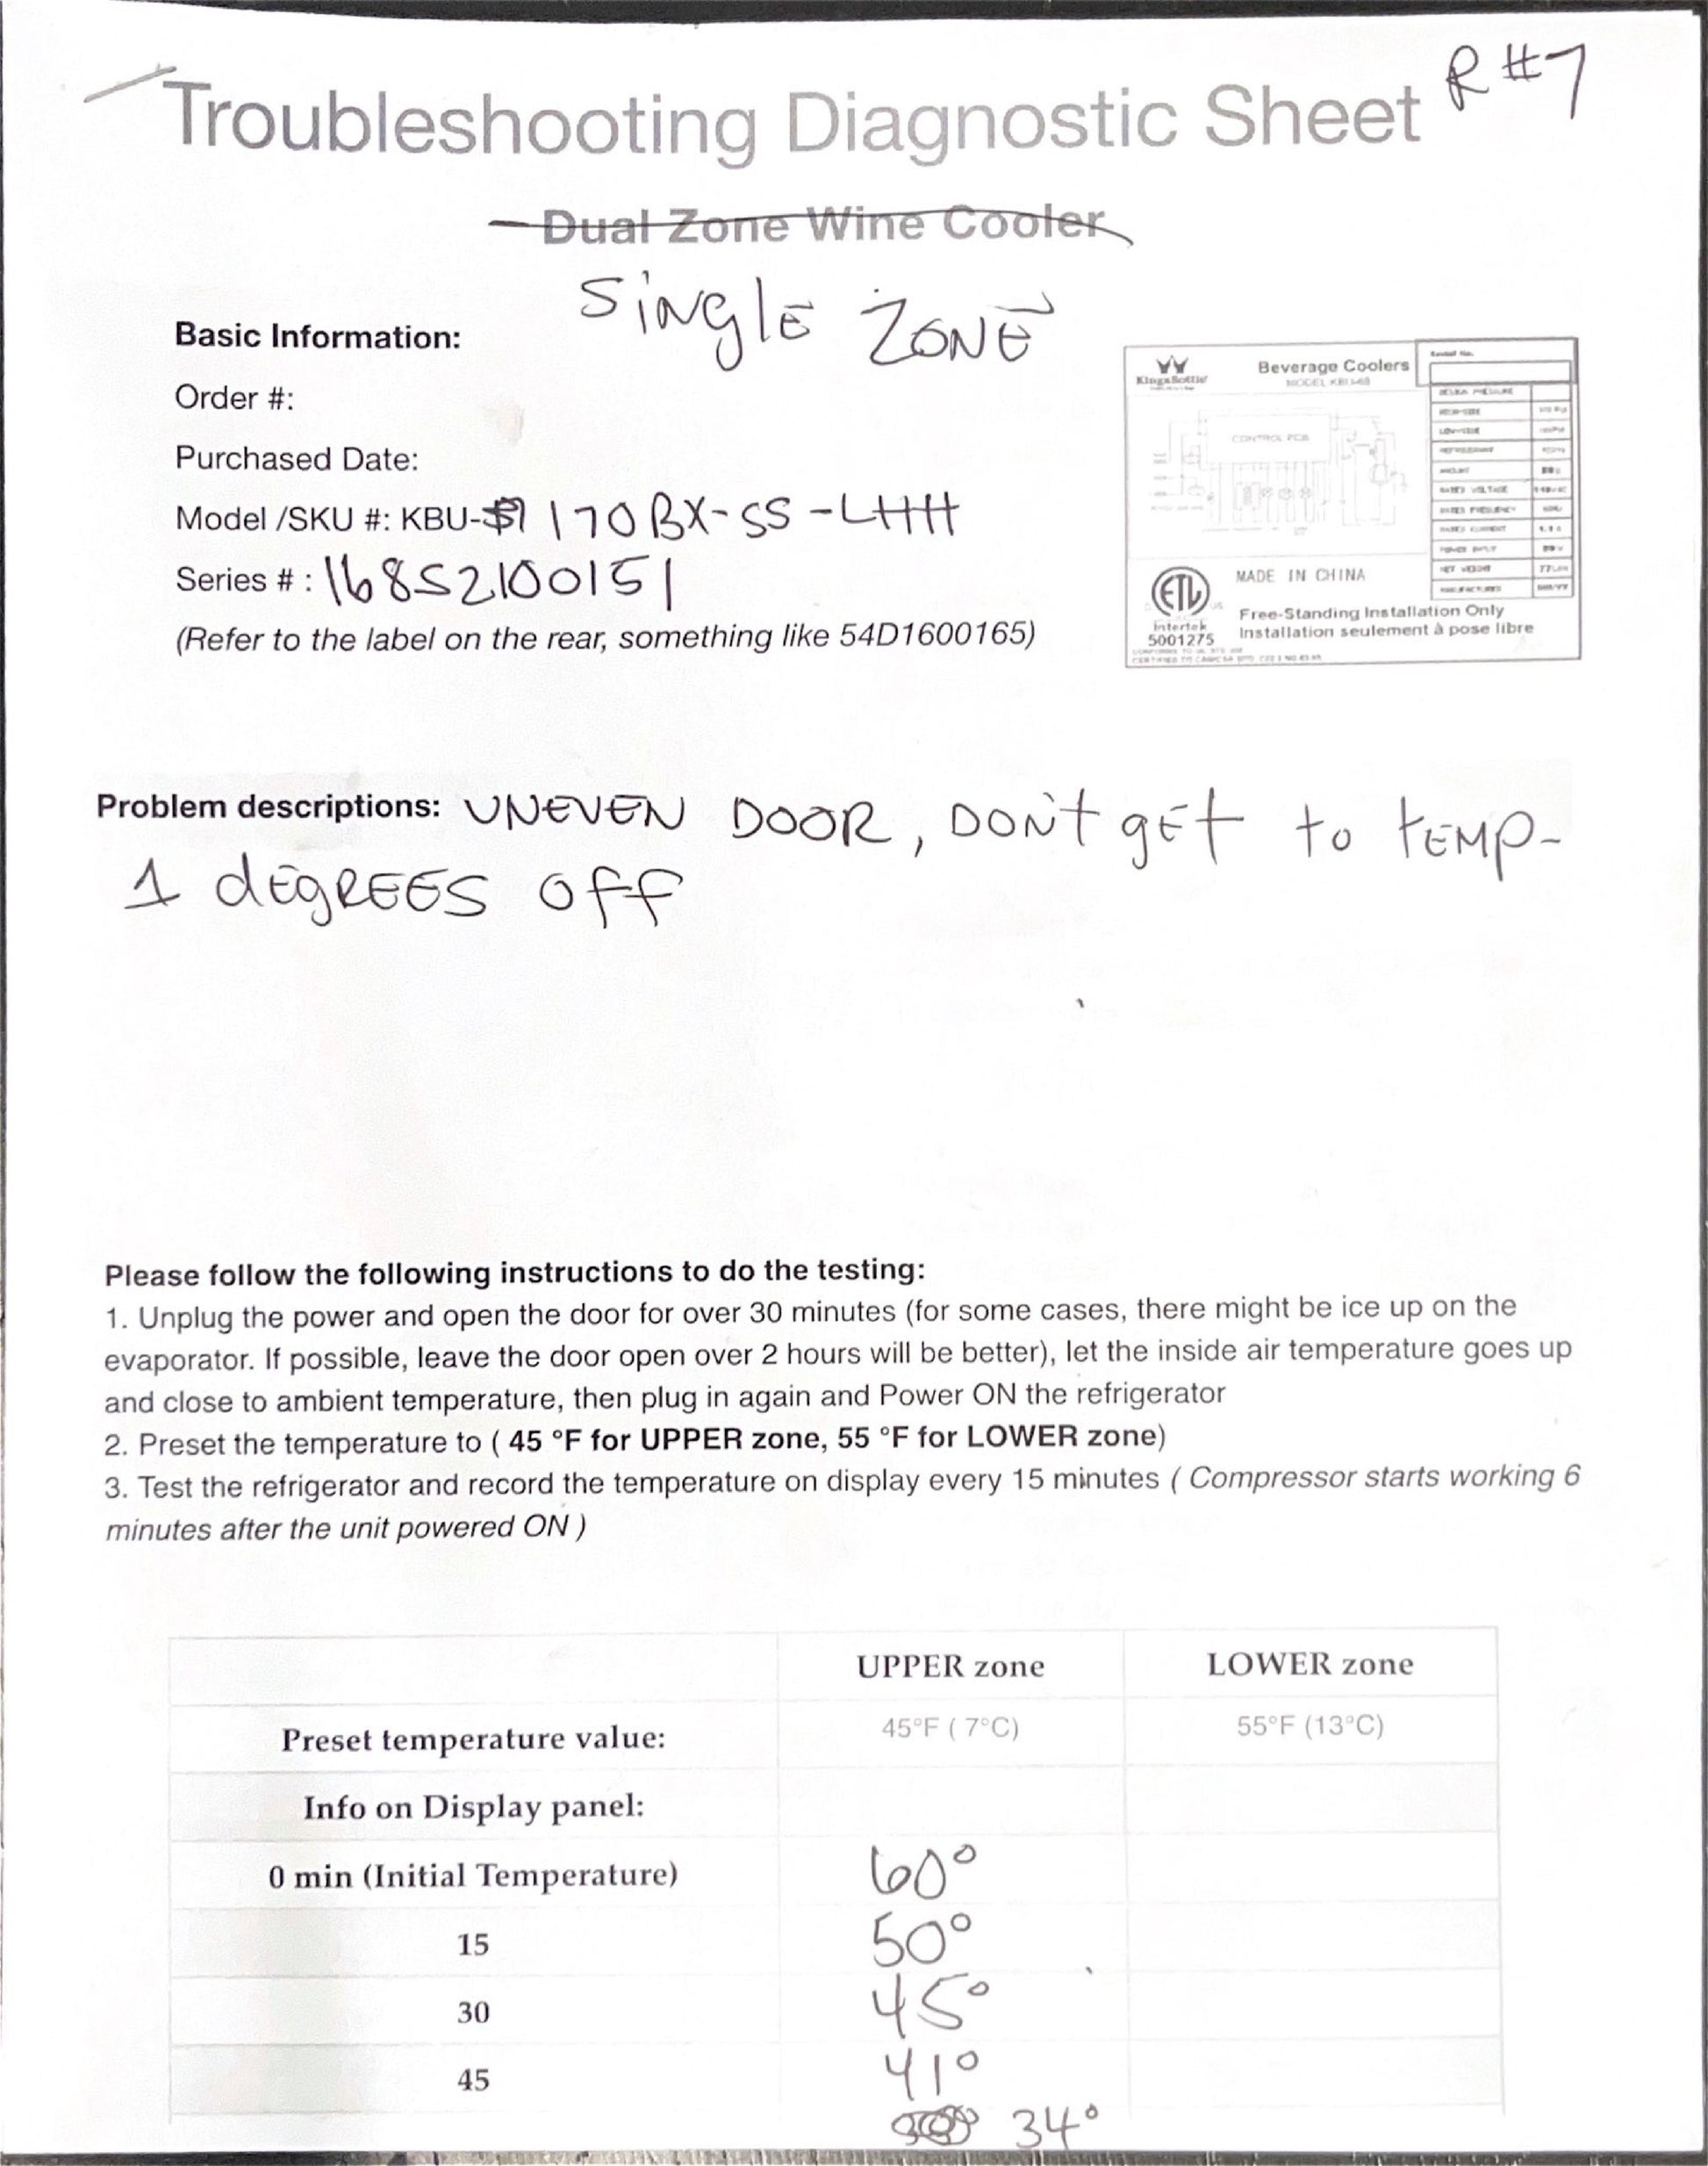 R#7
Troubleshooting Diagnostic Sheet
Dual Zone Wine Cooler
SiNglE ZONE
Basic Information:
Order #:
Purchased Date:
Model /SKU #: KBU- 170BX-SS-LHH
Series # : 16852100151
(Refer to the label on the rear, something like 54D1600165)
KingsBottle
Beverage Coolers
CONTROL PCB
MADE IN CHINA
Intertek
5001275
Free-Standing Installation Only
Installation seulement à pose libre
Problem descriptions: UNEVEN DOOR, DON't gEt to tEMP-
1 dEgREES Off
Please follow the following instructions to do the testing:
1. Unplug the power and open the door for over 30 minutes (for some cases, there might be ice up on the
evaporator. If possible, leave the door open over 2 hours will be better), let the inside air temperature goes up
and close to ambient temperature, then plug in again and Power ON the refrigerator
2. Preset the temperature to ( 45 °F for UPPER zone, 55 °F for LOWER zone)
3. Test the refrigerator and record the temperature on display every 15 minutes ( Compressor starts working 6
minutes after the unit powered ON )
UPPER zone LOWER zone
Preset temperature value: 45°F ( 7°C) 55°F (13°C)
Info on Display panel:
0 min (Initial Temperature) 60°
15 50°
30 45°
45 41°
34°